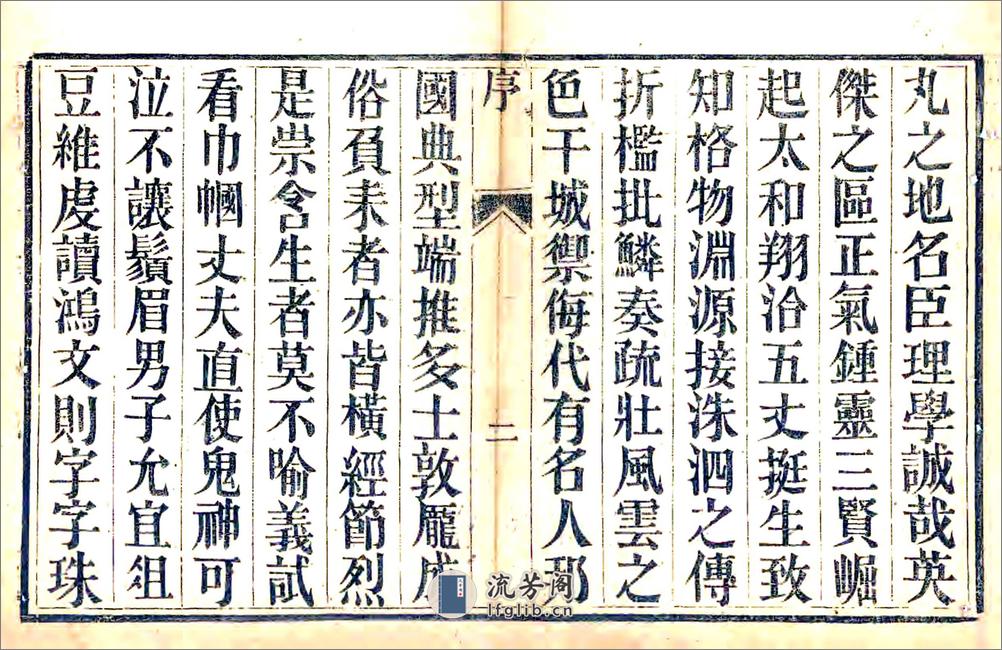 丸之地名臣理學誠哉英
傑之區正氣鍾靈三賢崛
起太和翔洽五丈挺生致
知格物淵源接洙泗之傳
折檻批鱗奏疏壯風雲之
色干城禦侮代有名人邦
序 二
國典型端推多士敦龐成
俗負耒者亦皆橫經節烈
是崇含生者莫不喻義試
看巾幗丈夫直使鬼神可
泣不讓鬚眉男子允宜俎
豆維虔讀鴻文則字字珠
流芳阁
lfglib.cn